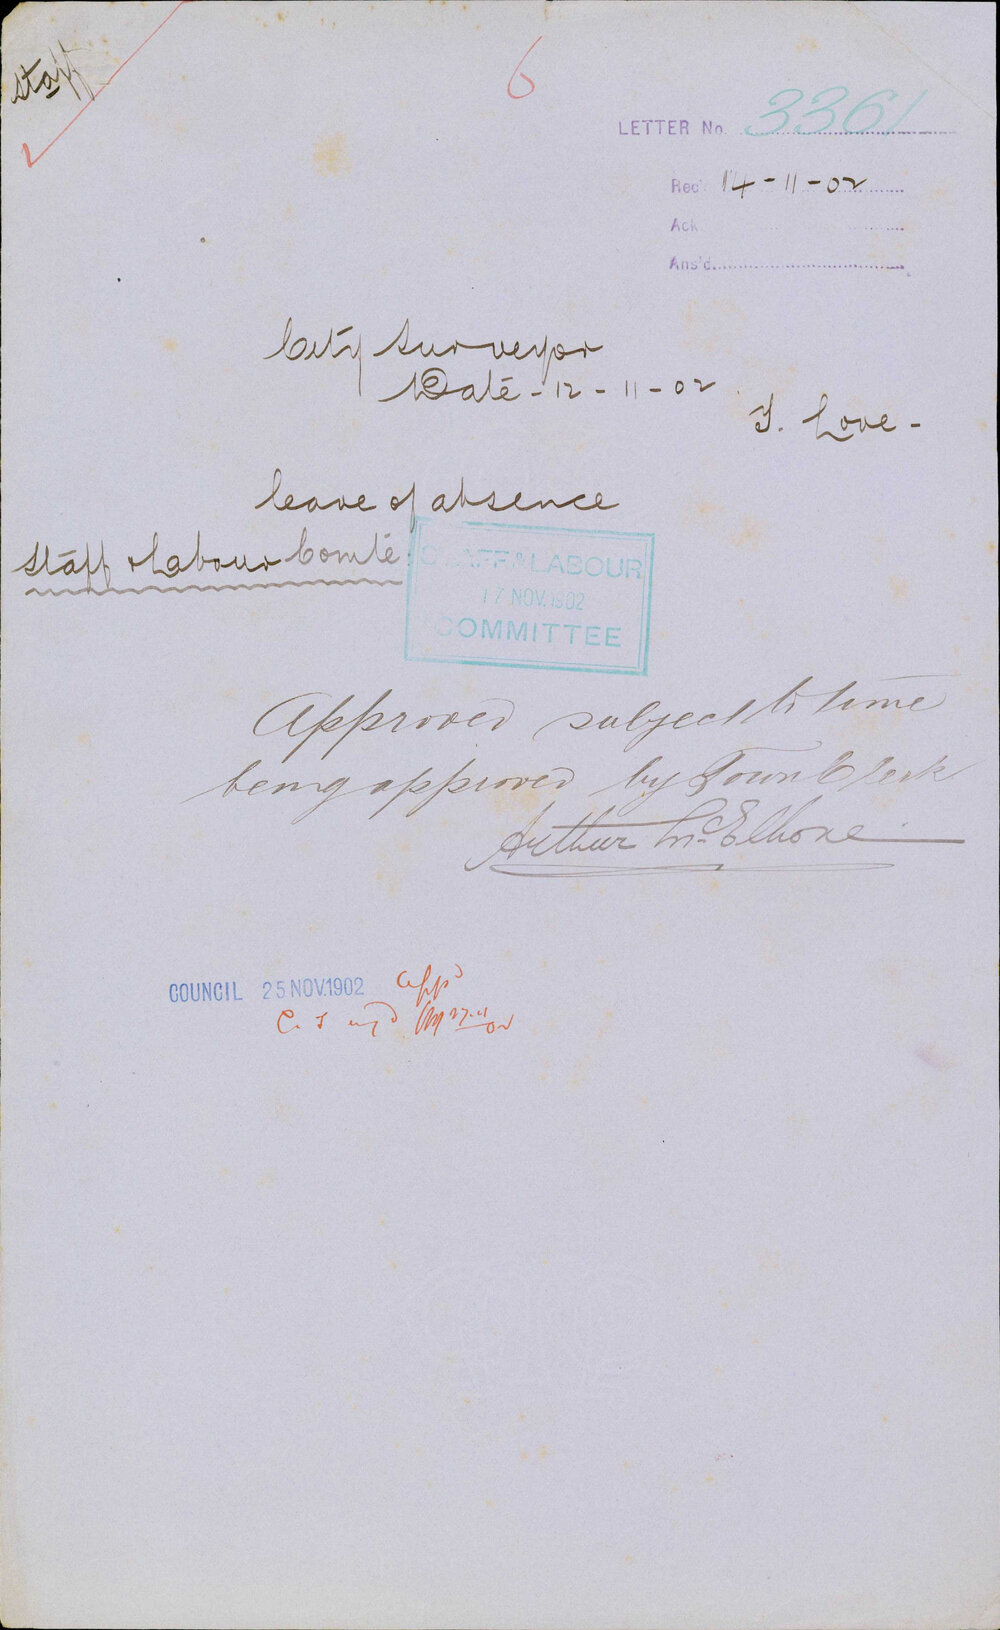 Staff
6
LETTER No. 3361
Rec'd 14-11-02
Ack
Ans'd
City Surveyor
Date - 12-11-02
T. Love -
leave of absence
Staff & Labour Comte
STAFF & LABOUR
17 NOV. 1902
COMMITTEE
Approved subject to time
being approved by Town Clerk
Arthur McElhone
COUNCIL 25 NOV. 1902 appd
27.11
02